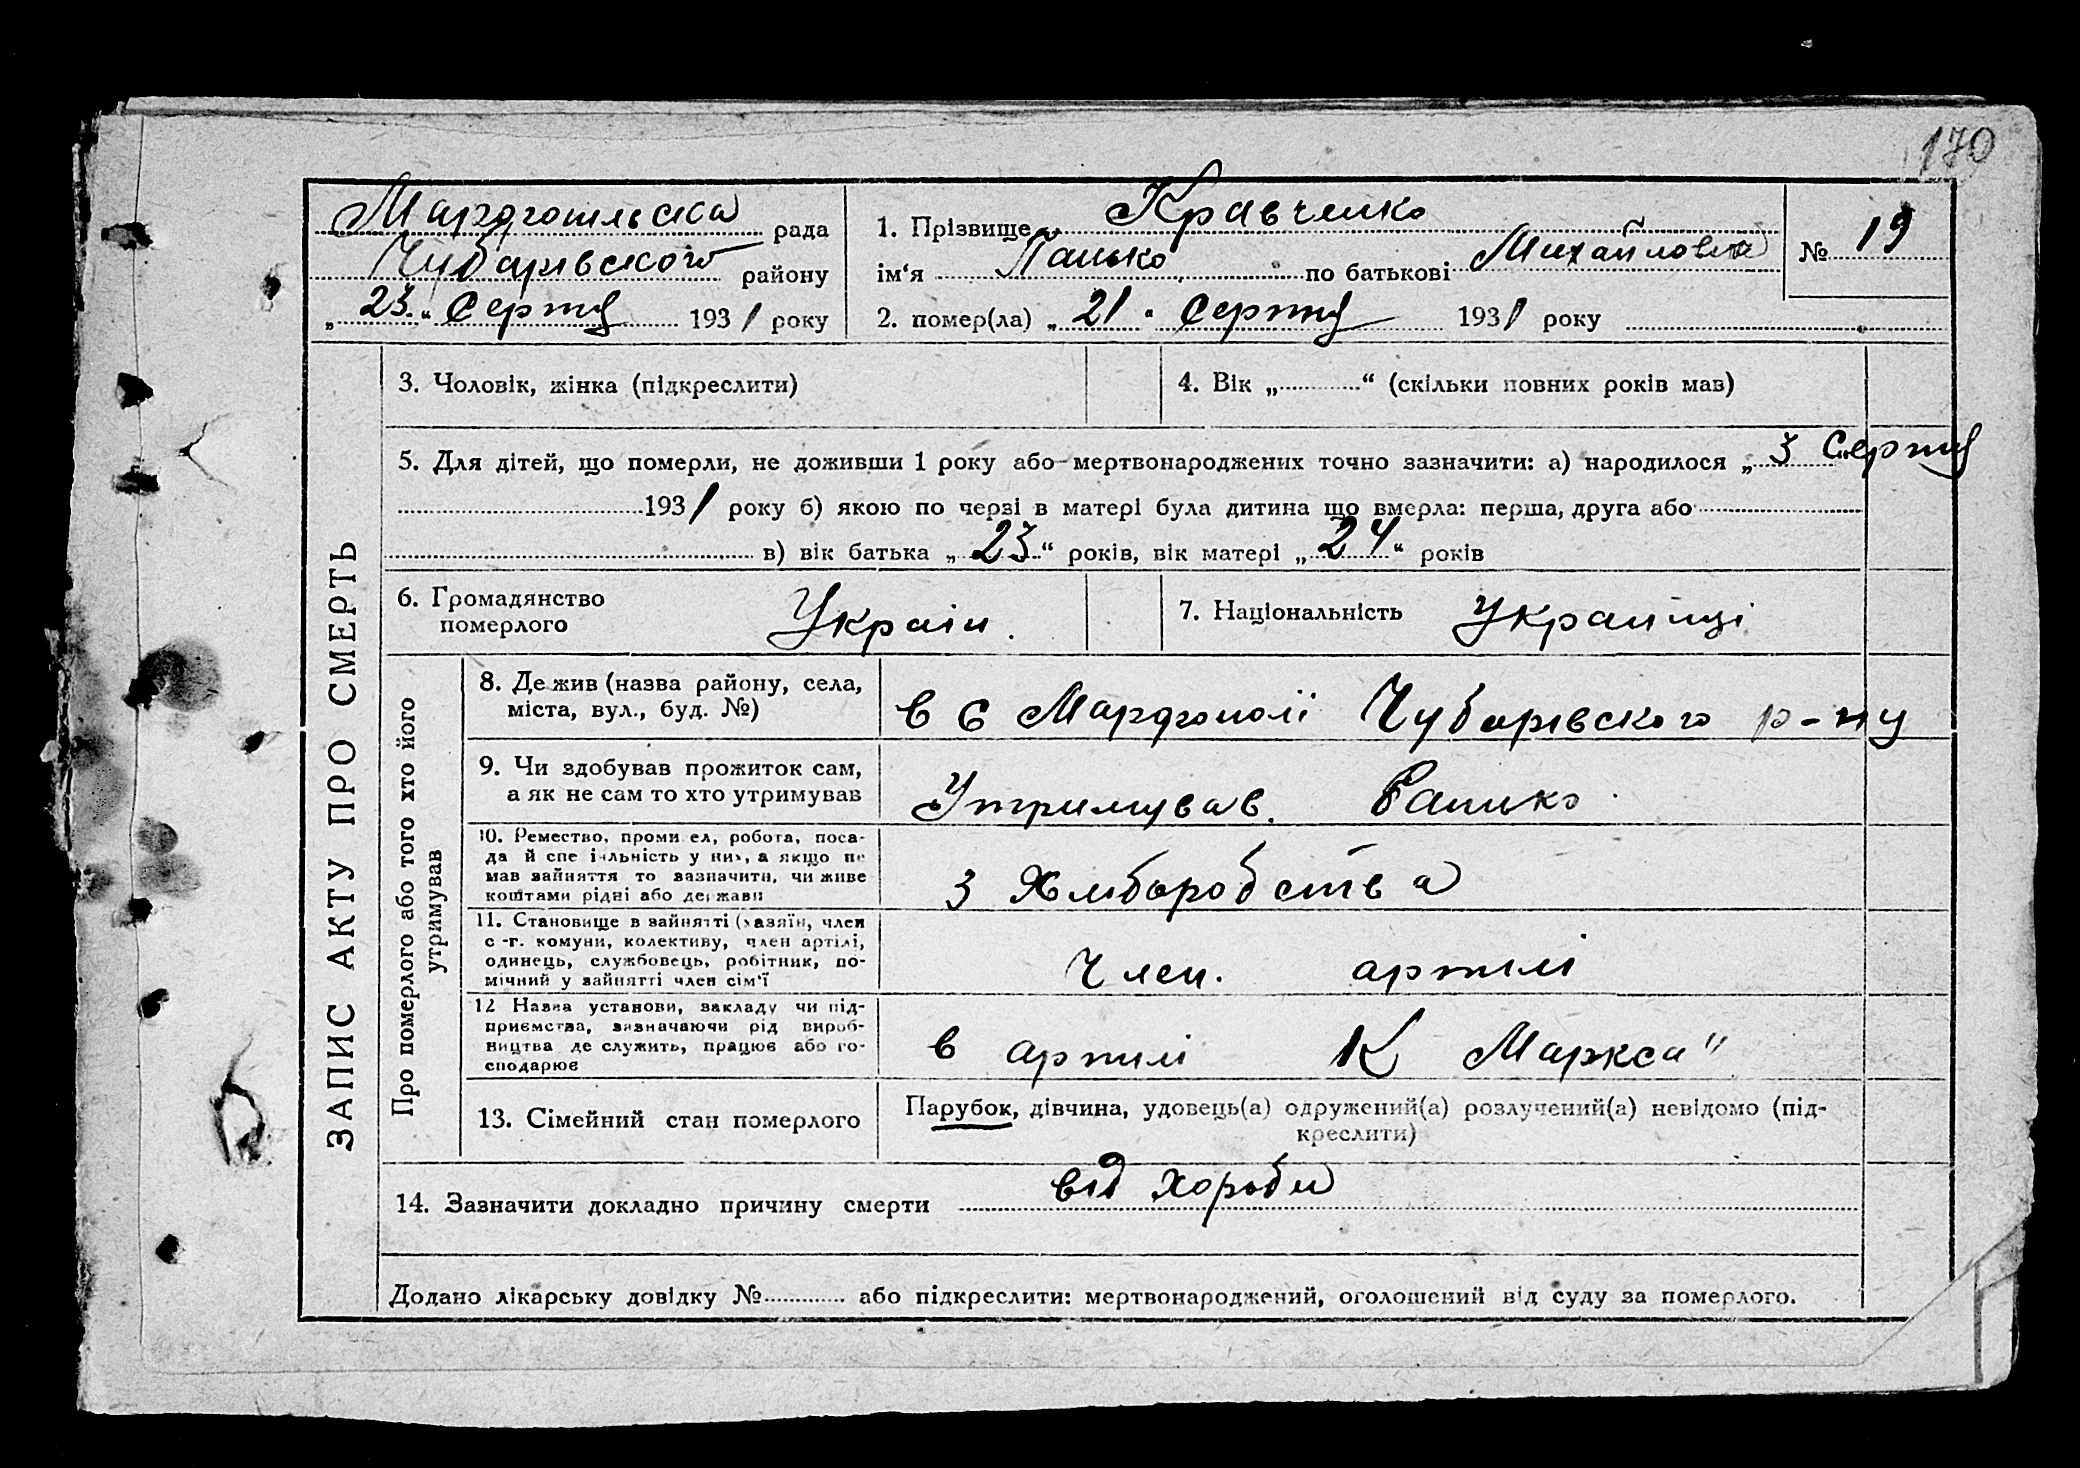 170
Мардгопільска рада
Чубарівского району
„23“ Серпня 1931 року
1. Прізвище Кравченко
ім‘я Панько по батькові Михайлович
№ 19
2. помер(ла) „21“ Серпня 1931 року
ЗАПИС АКТУ ПРО СМЕРТЬ
3. Чоловік, жінка (підкреслити)
4. Вік „ “ (скільки повних років мав)
5. Для дітей, що померли, не доживши 1 року або мертвонароджених точно зазначити: а) народилося „3 Серпня
1931 року б) якою по черзі в матері була дитина що вмерла: перша, друга або
в) вік батька „23“ років, вік матері „24“ років
6. Громадянство
померлого
Україн.
7. Національність Украинці
Про померлого або того хто його
утримував
8. Де жив (назва району, села,
міста, вул., буд. №)
в с Мардгополі Чубарівского р-ну
9. Чи здобував прожиток сам,
а як не сам то хто утримував
Утримував. Батько
10. Ремество, промисел, робота, поса-
да й спеціяльність у них, а якщо не
мав зайняття то зазначити, чи живе
коштами рідні або держави
З Хліборобства
11. Становище в зайнятті (хазяїн, член
с-г. комуни, колективу, член артілі,
одинець, службовець, робітник, по-
мічний у зайнятті член сім‘ї
Член. артілі
12 Назва установи, закладу чи під-
приємства, зазначаючи рід вироб-
ництва де служить, працює або го-
сподарює
в артілі К Маркса"
13. Сімейний стан померлого
Парубок, дівчина, удовець(а) одружений(а) розлучений(а) невідомо (під-
креслити)
14. Зазначити докладно причину смерти від хороби
Додано лікарську довідку № або підкреслити: мертвонароджений, оголошений від суду за померлого.